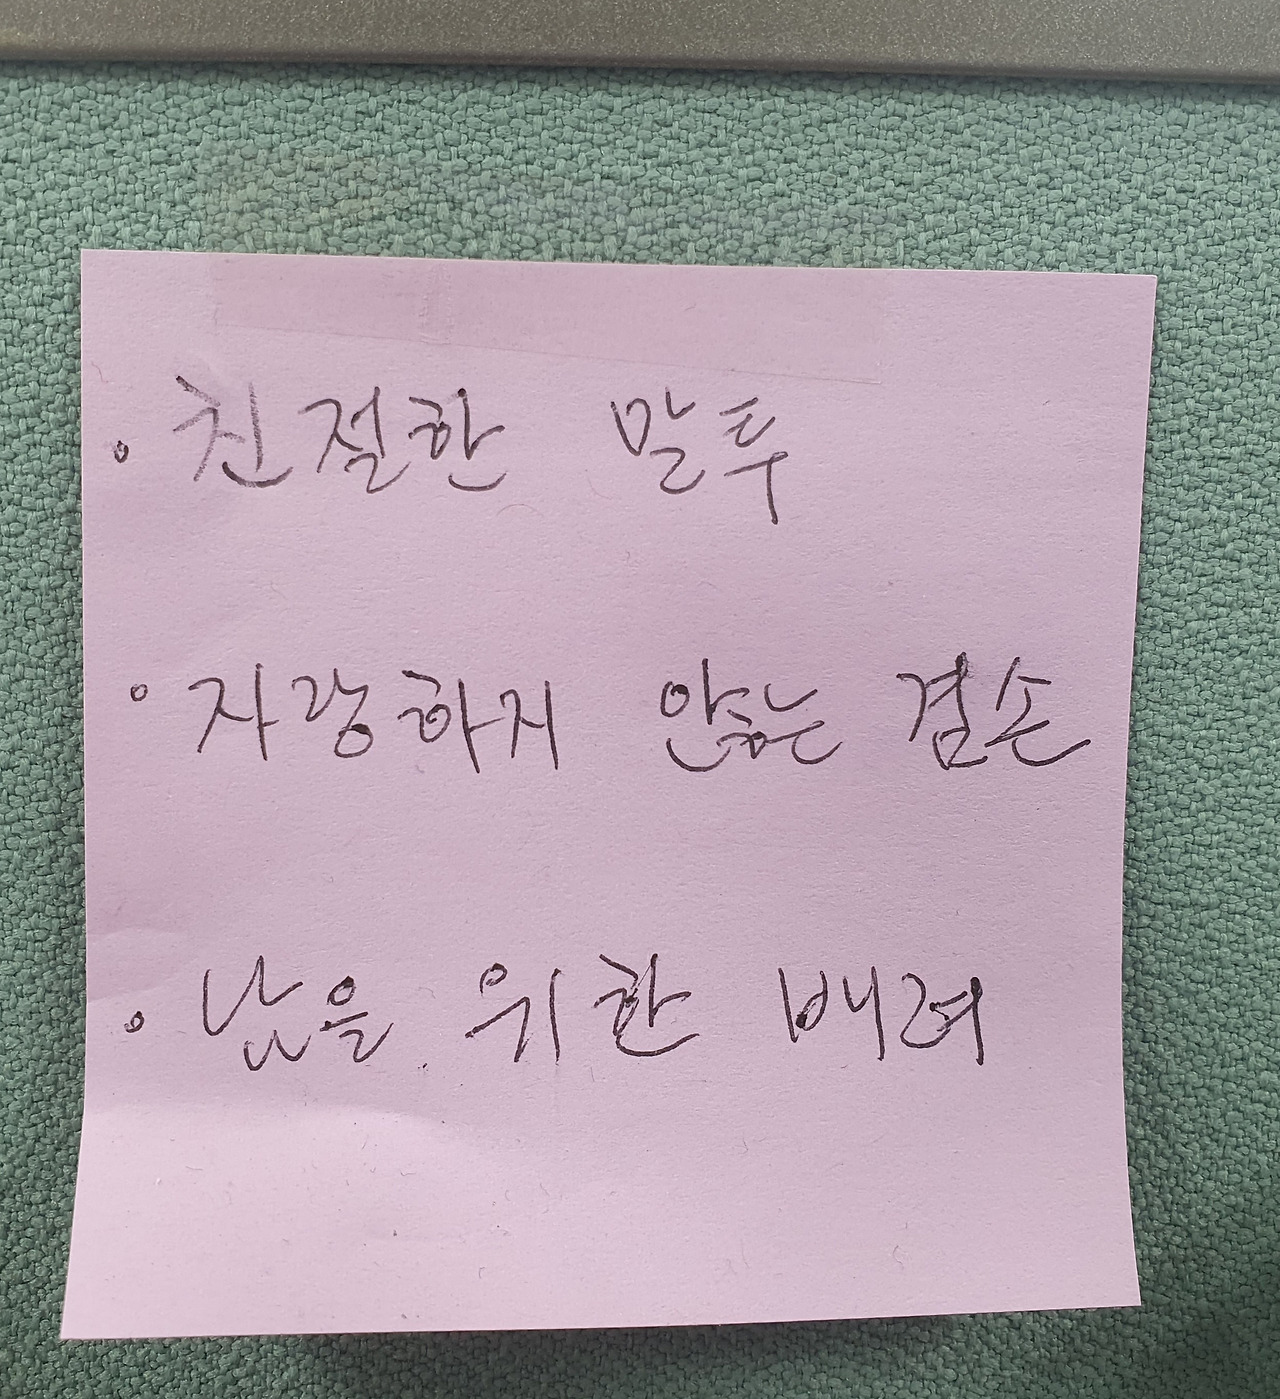 · 친절한 말투
· 자랑하지 않는 겸손
· 남을 위한 배려